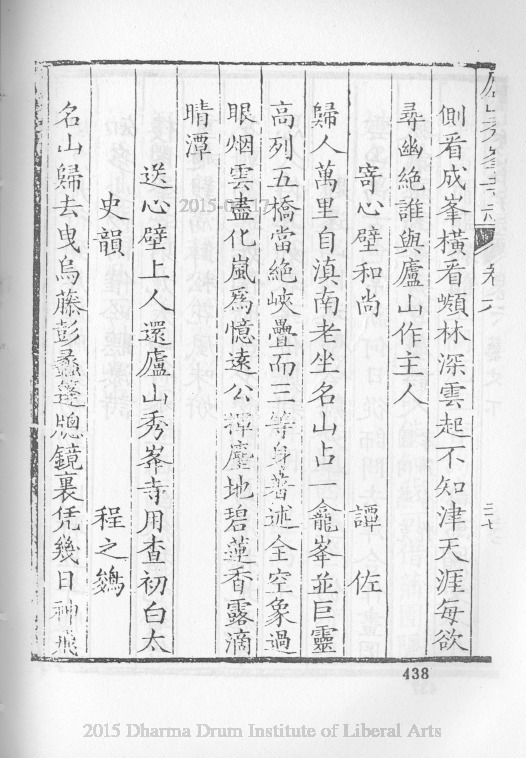 卷六
三七
側看成峯橫看嶺林深雲起不知津天涯每欲
尋幽絕誰與廬山作主人
寄心壁和尚　譚佐
歸人萬里自滇南老坐名山占一龕峯並巨靈
高列五橋當絕峽疊而三等身著述全空象過
眼烟雲盡化嵐爲憶遠公揮麈地碧蓮香露滴
晴潭
送心壁上人還廬山秀峯寺用查初白太
史韻　程之鵕
名山歸去曳烏藤彭蠡篷牕鏡裏凭幾日神飛
438
2015 Dharma Drum Institute of Liberal Arts